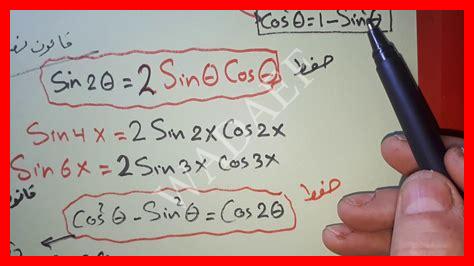 Cos²θ=1-Sin²θ
قانون
Sin2θ=2SinθCosθ
حفظ
Sin4x=2Sin2xCos2x
Sin6x=2Sin3xCos3x
حفظ
Cos²θ-Sin²θ=Cos2θ
WADAEF